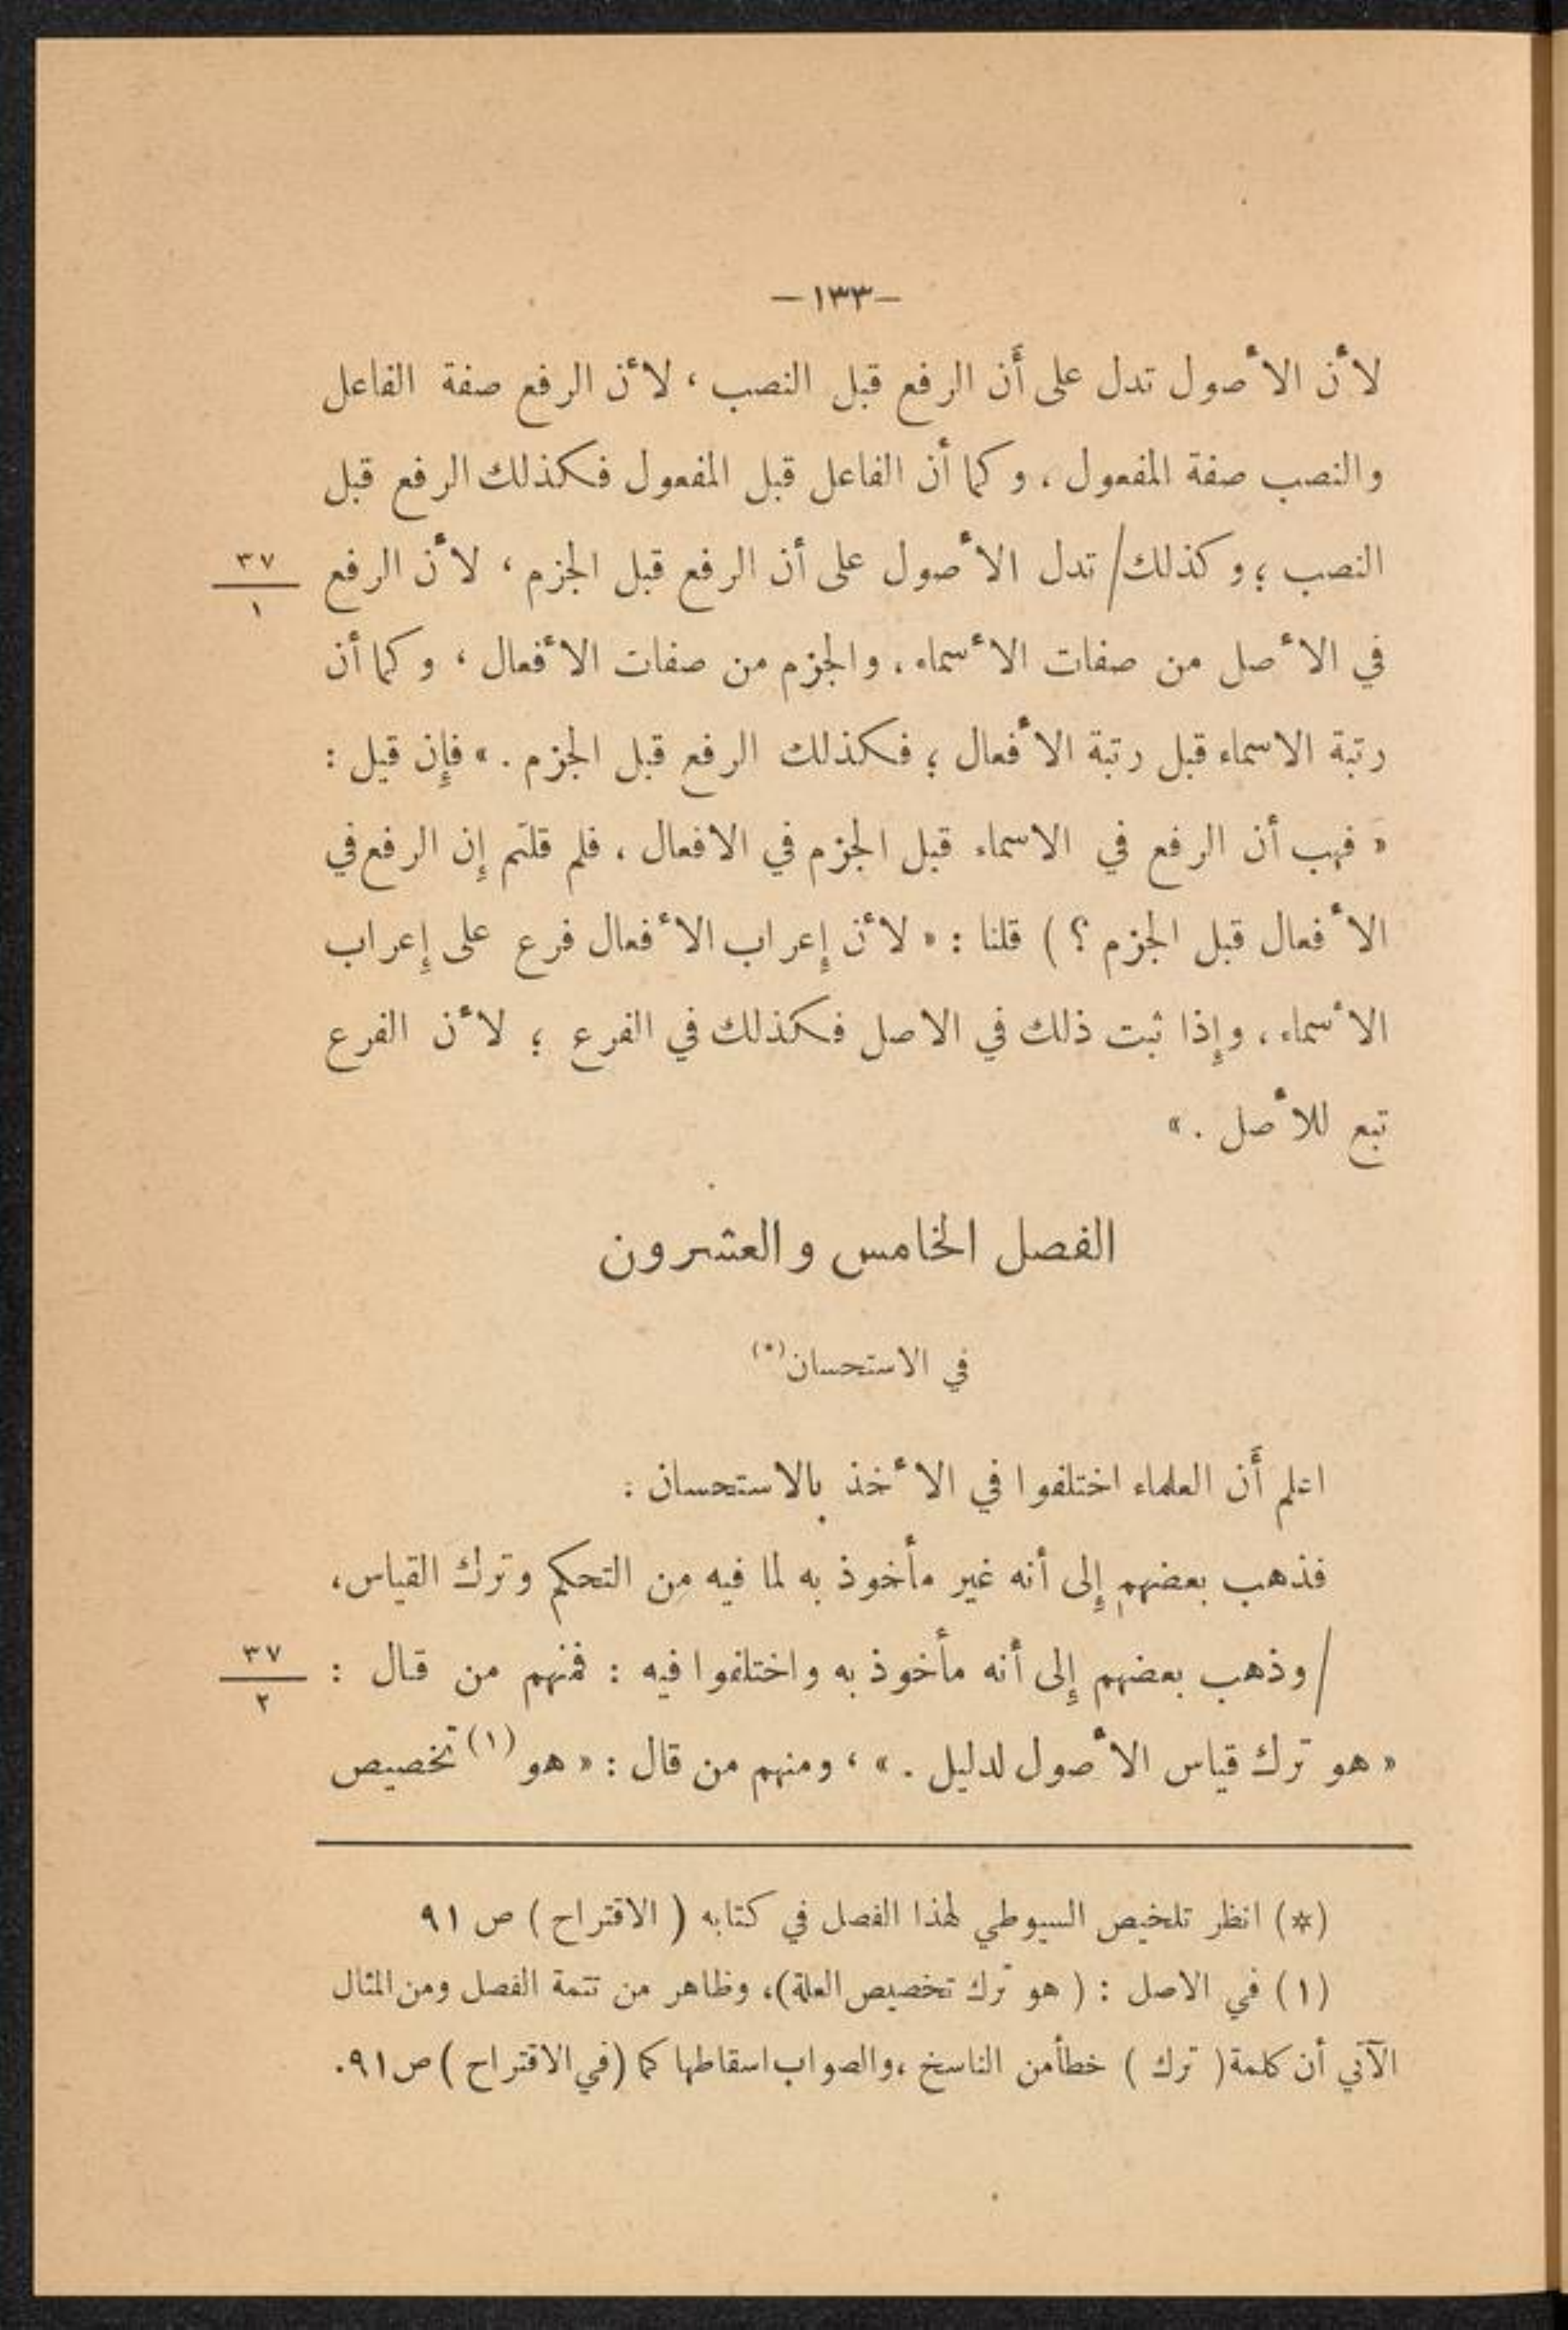 —١٣٣—
لأن الأصول تدل على أن الرفع قبل النصب ، لأن الرفع صفة الفاعل
والنصب صفة المفعول ، وكما أن الفاعل قبل المفعول فكذلك الرفع قبل
النصب ؛ وكذلك/ تدل الأصول على أن الرفع قبل الجزم ، لأن الرفع
٣٧
١
في الأصل من صفات الأسماء ، والجزم من صفات الأفعال ، وكما أن
رتبة الاسماء قبل رتبة الأفعال ؛ فكذلك الرفع قبل الجزم . » فإن قيل :
« فهب أن الرفع في الاسماء قبل الجزم في الافعال ، فلم قلتم إن الرفع في
الأفعال قبل الجزم ؟ ) قلنا : « لأن إعراب الأفعال فرع على إعراب
الأسماء ، وإذا ثبت ذلك في الاصل فكذلك في الفرع ؛ لأن الفرع
تبع للأصل . »
الفصل الخامس والعشرون
في الاستحسان(*)
اعلم أن العلماء اختلفوا في الأخذ بالاستحسان :
فذهب بعضهم إلى أنه غير مأخوذ به لما فيه من التحكم وترك القياس ،
/ وذهب بعضهم إلى أنه مأخوذ به واختلفوا فيه : فمنهم من قال :
٣٧
٢
« هو ترك قياس الأصول لدليل . » ، ومنهم من قال : « هو (١) تخصيص
(*) انظر تلخيص السيوطي لهذا الفصل في كتابه ( الاقتراح ) ص ٩١
(١) في الاصل : ( هو ترك تخصيص العلة)، وظاهر من تتمة الفصل ومن المثال
الآتي أن كلمة ( ترك ) خطأ من الناسخ ، والصواب اسقاطها كما (في الاقتراح ) ص ٩١.